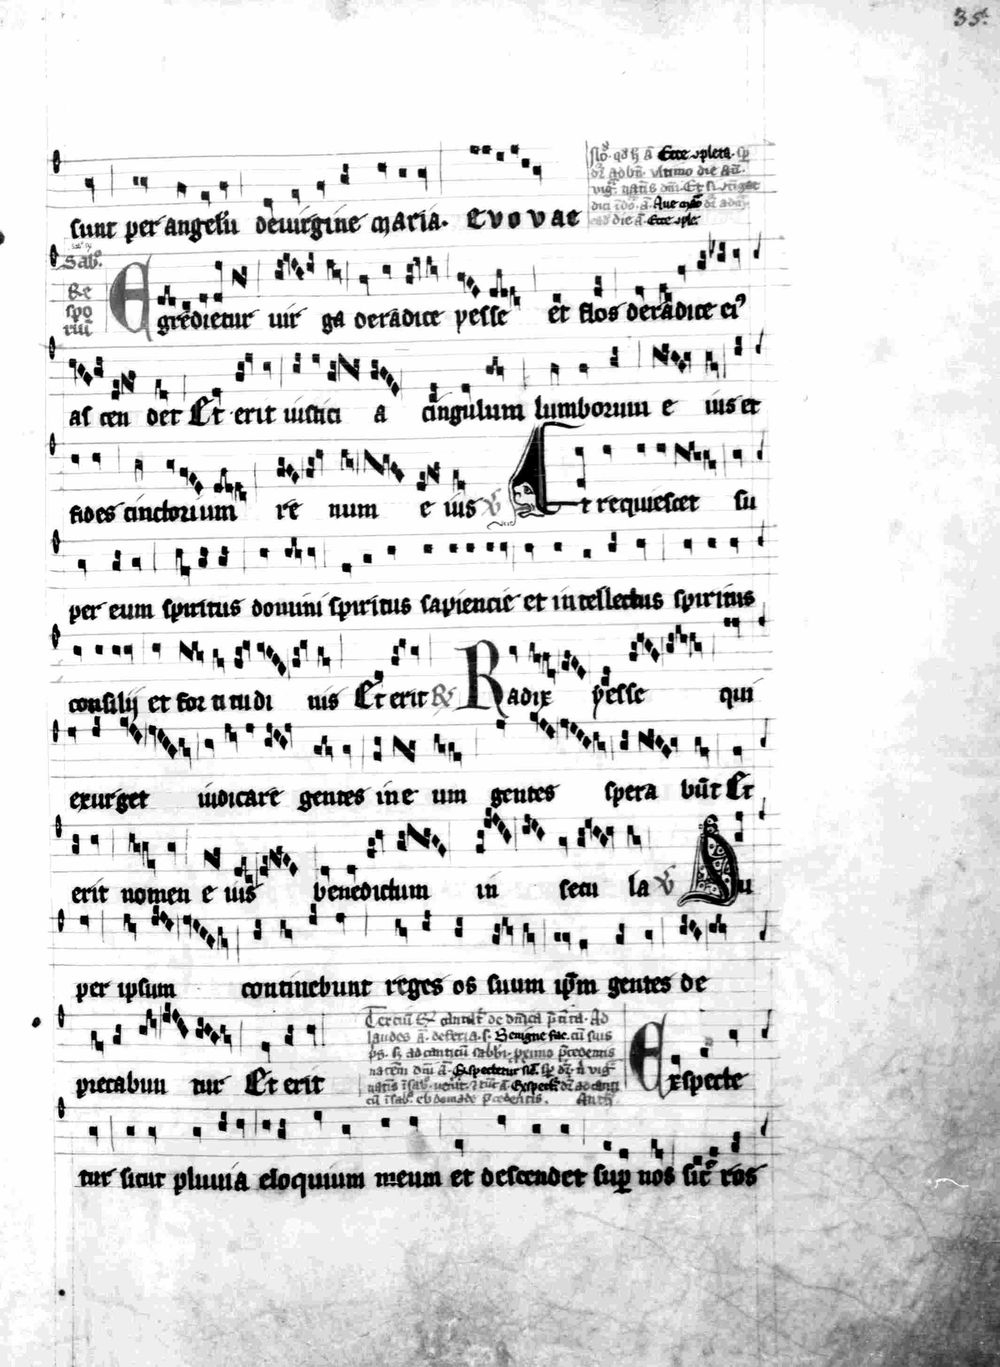 35
sunt per angelū de uirgine maria. Euouae
Ecce ↄpleta.
vltimo die
Aue ma
die a̅ Ecce ↄple
Sab̅o.
Re
spo
riu̅
Egredietur uir ga de radice yesse et flos de radice eiꝰ
as cen det Et erit iustici a cingulum lumborum e ius et
fides cinctorium re num e ius ℣ Et requiescet su
per eum spiritus domini spiritus sapiencie et intellectus spiritus
consilij et for ti tudi nis Et erit ℟ Radix yesse qui
exurget iudicare gentes in e um gentes spera bu̅t Et
erit nomen e ius benedictum in secu la ℣ Su
per ipsum continebunt reges os suum ip̅m gentes de
precabun tur Et erit
Terciu̅ ℟ cantat̉ de dn̅ica p̅ma. Ad
laudes a̅. de feria. s. Benigne fac. cu̅ suis
ps̅.
Expectetur sic̅
Exspecte
tur sicut pluuia eloquium meum et descendet suꝑ nos sic̅ ros